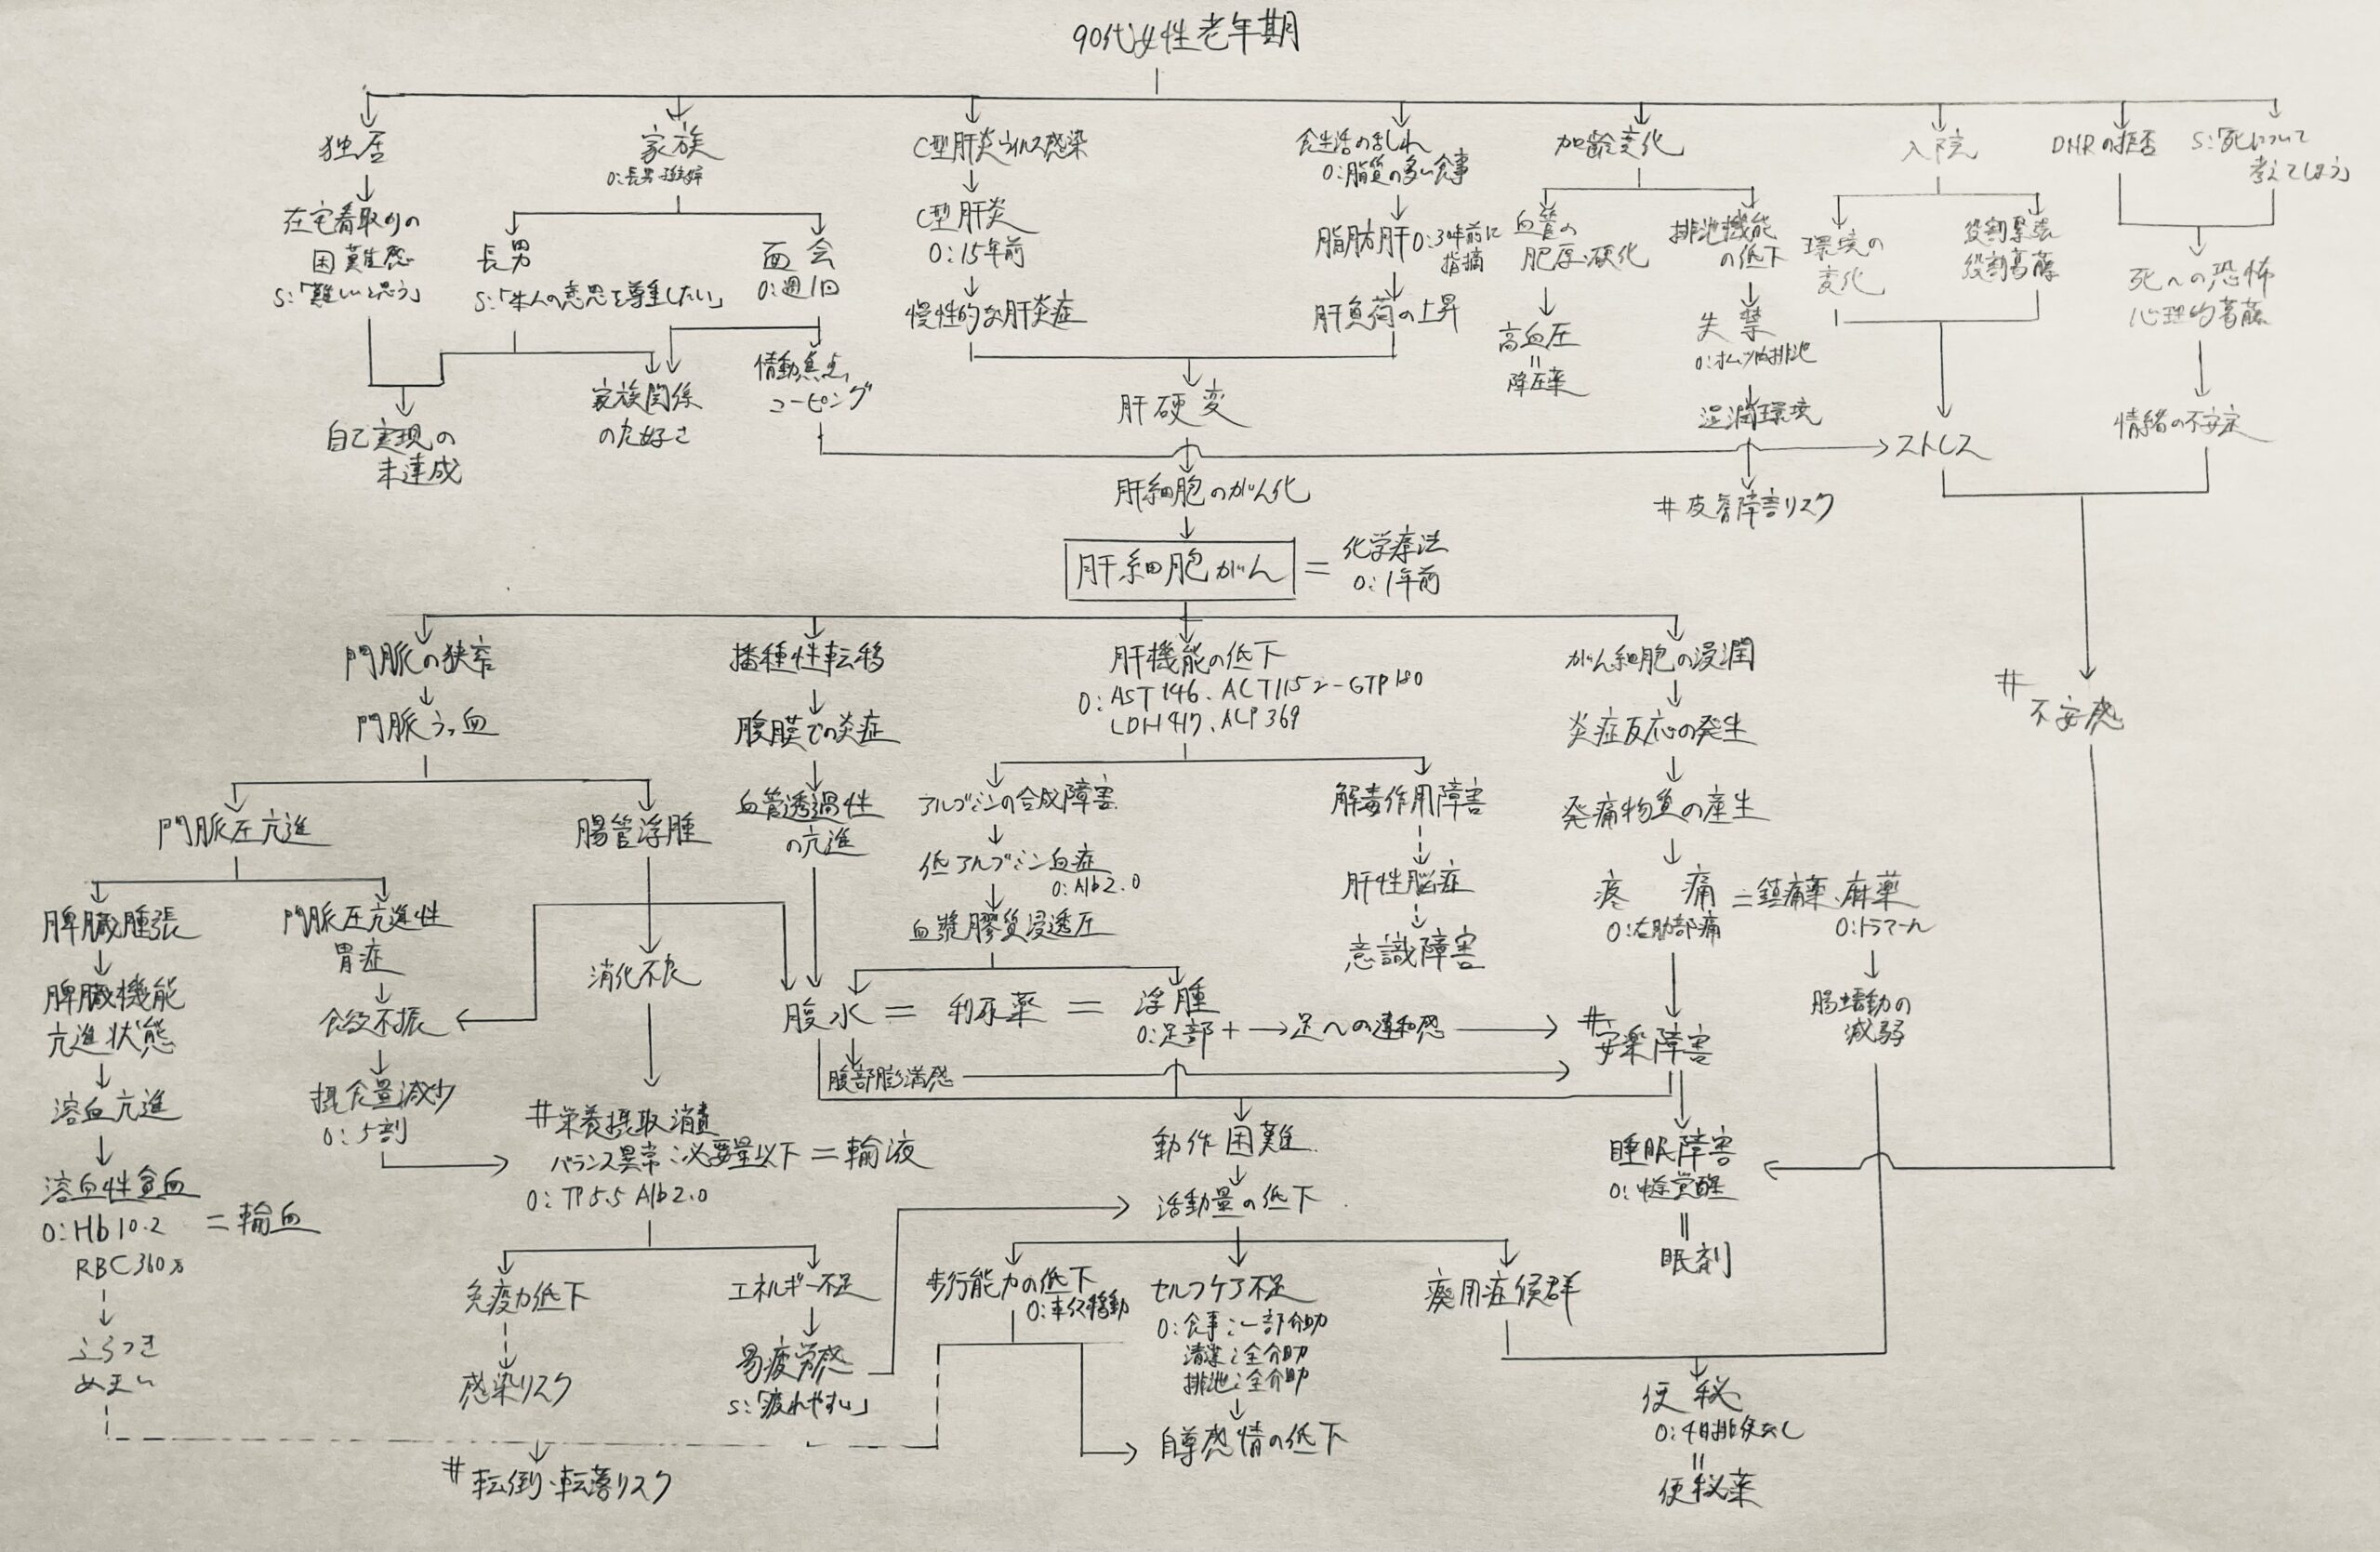 90代女性老年期
独居
家族
O:長男
C型肝炎ウイルス感染
食生活の乱れ
O:脂質の多い食事
加齢変化
入院
DNRの拒否
S:「死について
考えてしまう」
在宅看取りの
困難感
S:「難しいと思う」
長男
S:「本人の意思を尊重したい」
面会
O:週1回
C型肝炎
O:15年前
慢性的な肝炎症
脂肪肝 O:30年前に
指摘
肝負荷の上昇
血管の
肥厚・硬化
高血圧
=
降圧薬
排泄機能
の低下
失禁
O:オムツ内排泄
湿潤環境
#皮膚障害リスク
環境の
変化
役割緊張
役割葛藤
死への恐怖
心理的葛藤
情緒の不安定
自己実現の
未達成
家族関係
の良好さ
情動焦点
コーピング
肝硬変
ストレス
肝細胞のがん化
肝細胞がん = 化学療法
O:1年前
#不安感
門脈の狭窄
門脈うっ血
播種性転移
腹膜での炎症
血管透過性
の亢進
肝機能の低下
O:AST 146. ACT115 γ-GTP 180
LDH 417. ALP 369
がん細胞の浸潤
炎症反応の発生
発痛物質の産生
疼痛 = 鎮痛薬・麻薬
O:右肋部痛
O:トラマール
腸蠕動の
減弱
門脈圧亢進
腸管浮腫
アルブミンの合成障害
低アルブミン血症
O:Alb2.0
血漿膠質浸透圧
解毒作用障害
肝性脳症
意識障害
脾臓腫張
脾臓機能
亢進状態
溶血亢進
溶血性貧血
O:Hb10.2 = 輸血
RBC360万
ふらつき
めまい
門脈圧亢進性
胃症
食欲不振
摂食量減少
O:5割
消化不良
腹水 = 利尿薬 = 浮腫
O:足部+ → 足への違和感
#安楽障害
腹部膨満感
#栄養摂取消費
バランス異常:必要量以下 = 輸液
O:TP5.5 Alb2.0
動作困難
活動量の低下
睡眠障害
O:中途覚醒
=
眠剤
免疫力低下
感染リスク
エネルギー不足
易疲労感
S:「疲れやすい」
歩行能力の低下
O:車イス移動
セルフケア不足
O:食事:一部介助
清潔:全介助
排泄:全介助
自尊感情の低下
廃用症候群
便秘
O:4日排便なし
=
便秘薬
#転倒・転落リスク